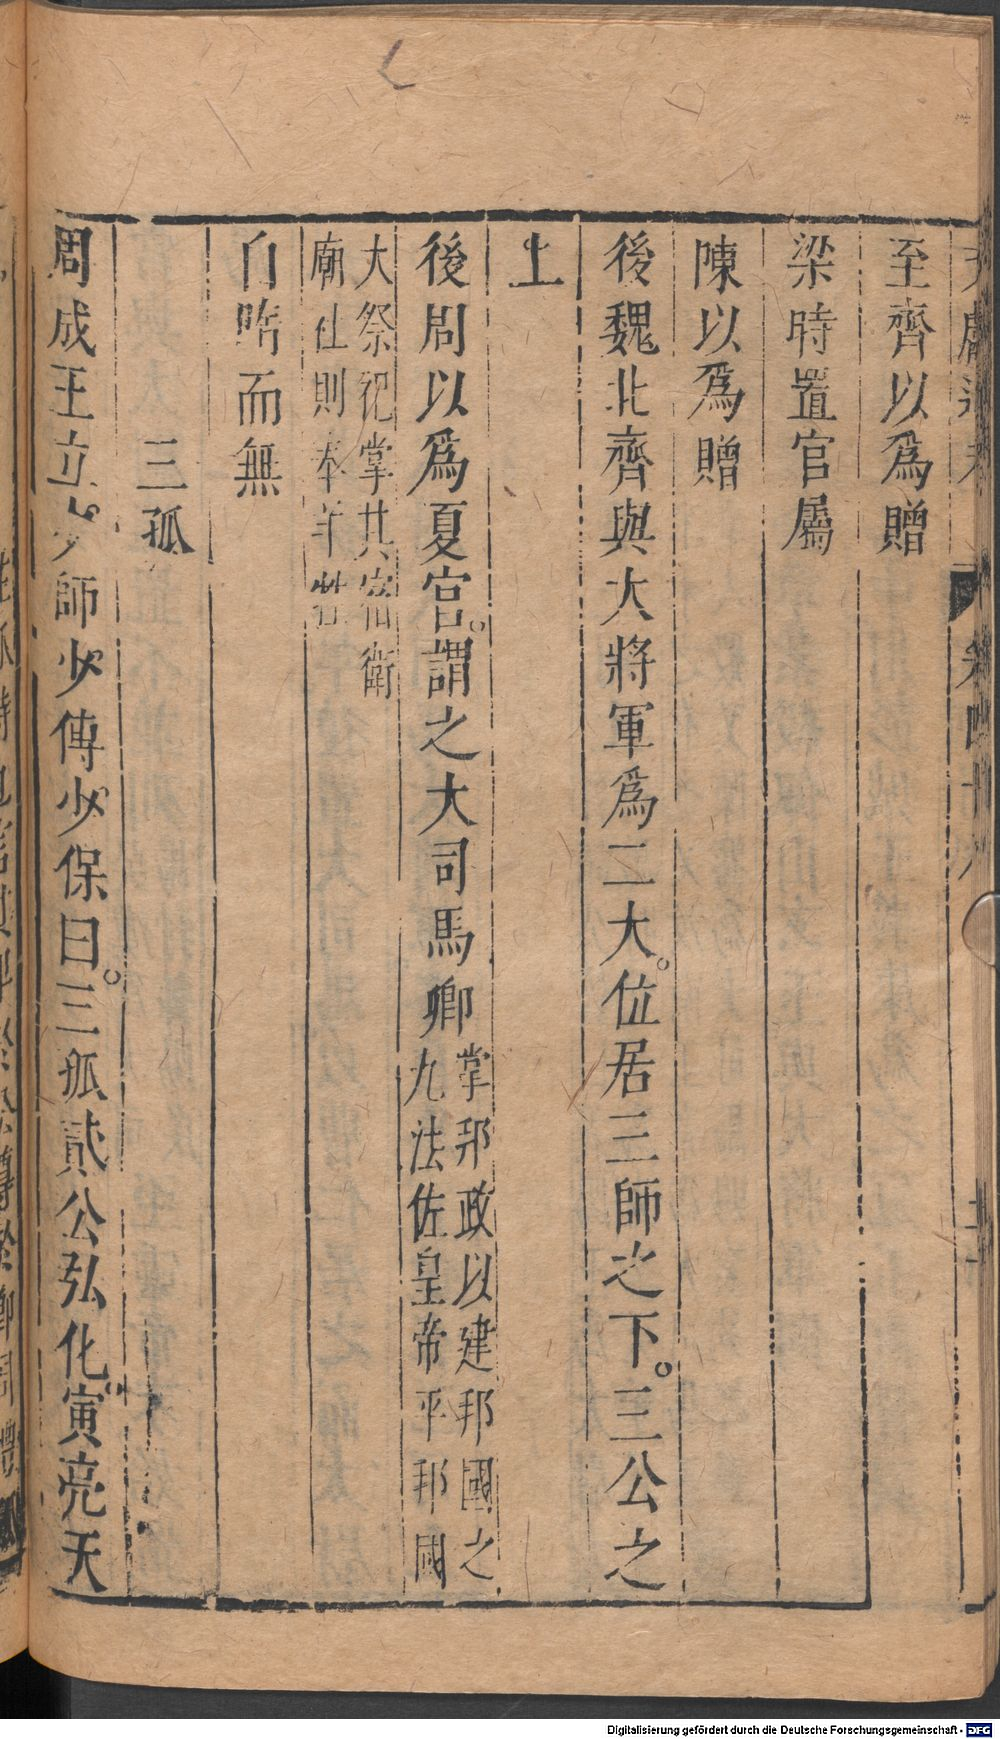 文獻通考 卷四十八
至齊以爲贈
梁時置官屬
陳以爲贈
後魏北齊與大將軍爲二大。位居三師之下。三公之
上
後周以爲夏官。謂之大司馬卿掌邦政以建邦國之
九法佐皇帝平邦國
大祭祀掌其宿衛
廟社則奉羊牲
自隋而無
三孤
周成王立少師少傅少保曰。三孤貳公弘化。寅亮天
Digitalisierung gefördert durch die Deutsche Forschungsgemeinschaft - DFG